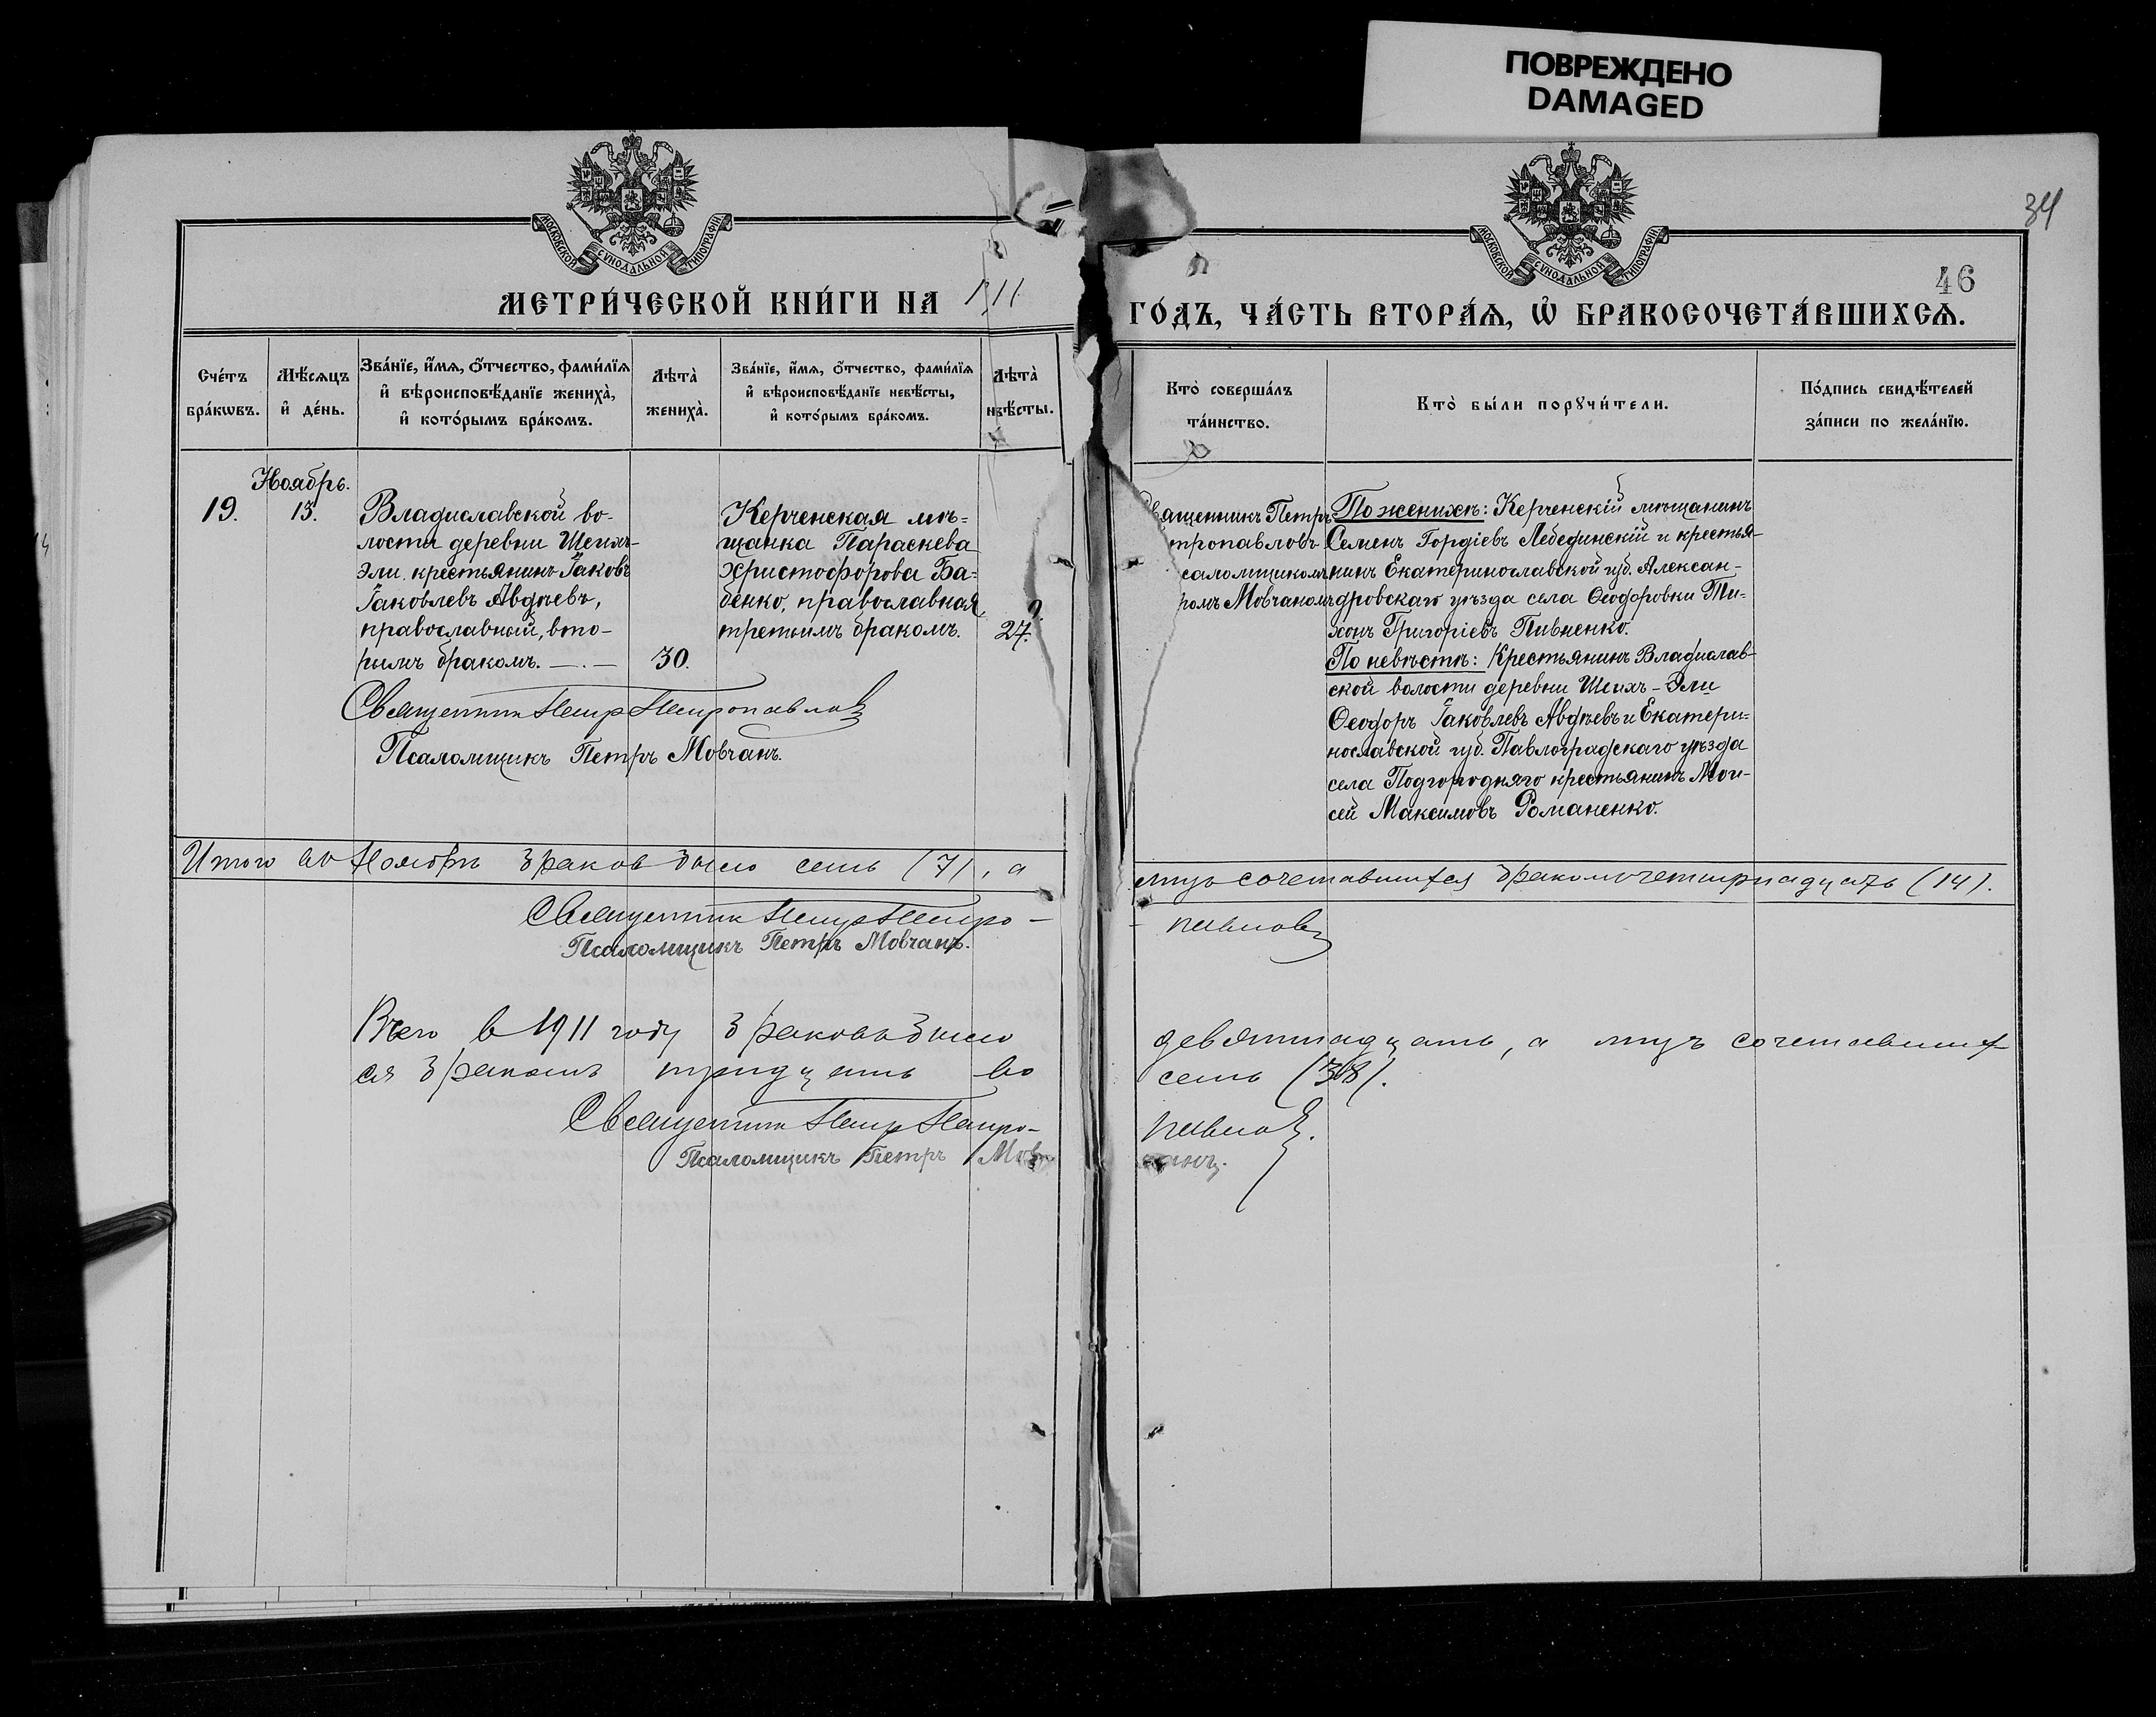 ПОВРЕЖДЕНО
DAMAGED
34
46
МОСКОВСКОЙ СУНОДАЛЬНОЙ ТИПОГРАФІИ
МОСКОВСКОЙ СУНОДАЛЬНОЙ ТИПОГРАФІИ
МЕТРИ́ЧЕСКОЙ КНИ́ГИ НА 1911
ГО́ДЪ, ЧА́СТЬ ВТОРА́Ѧ, Ѡ҆ БРАКОСОЧЕТА́ВШИХСѦ.
Сче́тъ бра́кѡвъ.
Мѣ́сѧцъ и҆ де́нь.
Зва́нїе, и҆́мѧ, ѻ҆́тчество, фами́лїѧ
и҆ вѣроисповѣ́данїе жениха̀,
и҆ кото́рымъ бра́комъ.
Лѣта̀ жениха̀.
Зва́нїе, и҆́мѧ, ѻ҆́тчество, фами́лїѧ
и҆ вѣроисповѣ́данїе невѣ́сты,
и҆ кото́рымъ бра́комъ.
Лѣта̀ невѣ́сты.
Кто̀ соверша́лъ
та́инство.
Кто̀ бы́ли порꙋчи́тели.
По́дпись свидѣ́телей
за́писи по жела́нїю.
Ноябрь.
19. 13.
Владиславской во-
лости деревни Шеихъ-
Эли, крестьянинъ Іаковъ
Іаковлевъ Авдѣевъ,
православный, вто-
рымъ бракомъ. —.—
30.
Керченская мѣ=
щанка Параскева
Христофорова Ба=
бенко, православная,
третьимъ бракомъ.
27.
Священникъ Петръ
тропавловъ
саломщикомъ
ромъ Мовчаномъ
По женихѣ: Керченскій мѣщанинъ
Семенъ Гордіевъ Лебединскій и крестья-
нинъ Екатеринославской губ. Алексан-
дровскаго уѣзда села Ѳеодоровки Ти-
хонъ Григоріевъ Пивненко.
По невѣстѣ: Крестьянинъ Владислав-
ской волости деревни Шеихъ-Эли
Ѳеодоръ Іаковлевъ Авдѣевъ и Екатери=
нославской губ. Павлоградскаго уѣзда
села Подгородняго крестьянинъ Мои-
сей Максимовъ Романенко.
Священник Петр Петропавловъ
Псаломщикъ Петръ Мовчанъ.
Итого въ Ноябрѣ браков было семь (7), а
лицъ сочетавшихся бракомъ четырнадцать (14).
Священник Петр Петро-
павловъ
Псаломщикъ Петръ Мовчанъ.
Всего в 1911 году браковъ было
девятнадцать, а лицъ сочетавших-
ся бракомъ тридцать во
семь (38).
Священник Петр Петро-
павловъ.
Псаломщикъ Петръ Мов
чанъ.